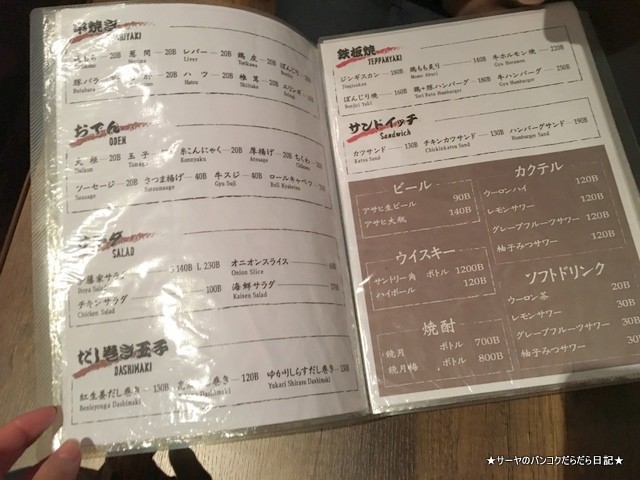 串焼き
KUSHIYAKI
20B 葱間 20B レバー 20B 鶏皮 20B ぼんじり
Liver Torikawa Bonjiri
豚バラ 20B ハツ 20B 椎茸 50B
Butabara Hatsu Shiitake
おでん
ODEN
大根 20B 玉子 20B 糸こんにゃく 20B 厚揚げ 20B ちくわ
Daikon Tamago Konnyaku Atsuage Chikuwa
ソーセージ 20B さつま揚げ 40B 牛スジ 40B ロールキャベツ
Sausage Satsumaage Gyu Suji Roll Kyabetsu
サラダ
SALAD
藤家サラダ S 140B L 230B オニオンスライス
Salad Onion Slice
チキンサラダ 100B 海鮮サラダ
Chicken Salad Kaisen Salad
だし巻き玉子
DASHIMAKI
紅生姜だし巻き 130B 巻き 120B ゆかりしらすだし巻き 130B
Benisyouga Dashimaki Dashimaki Yukari Shirasu Dashimaki
鉄板焼
TEPPANYAKI
ジンギスカン 180B 鶏もも炙り 140B 牛ホルモン焼 220B
Jingisukan Momo Aburi Gyu Horumon
ぼんじり焼 160B 鶏+豚ハンバーグ 180B 牛ハンバーグ 250B
Bonjiri Yaki Tori Buta Hamburger Gyu Hamburger
サンドイッチ
Sandwich
カツサンド 130B チキンカツサンド 130B ハンバーグサンド 190B
Katsu Sand Chickinkatsu Sand Hamburger Sand
ビール
アサヒ生ビール 90B
アサヒ大瓶 140B
ウイスキー
サントリー角 ボトル 1200B
ハイボール 120B
焼酎
鏡月 ボトル 700B
鏡月梅 ボトル 800B
カクテル
ウーロンハイ 120B
レモンサワー 120B
グレープフルーツサワー 120B
柚子みつサワー 120B
ソフトドリンク
ウーロン茶 20B
レモンサワー 30B
グレープフルーツサワー 30B
柚子みつサワー 30B
★サーヤのバンコクだらだら日記★